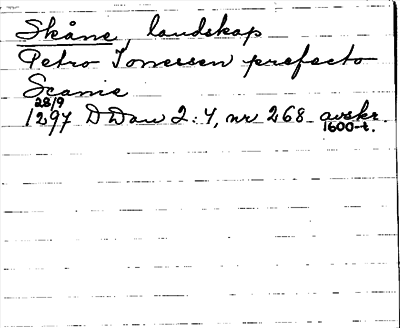 Skåne, landskap
Petro Tonessen prefecto
Scanie
28/9
1297 DDan 2:4, nr 268 avskr.
1600-t.